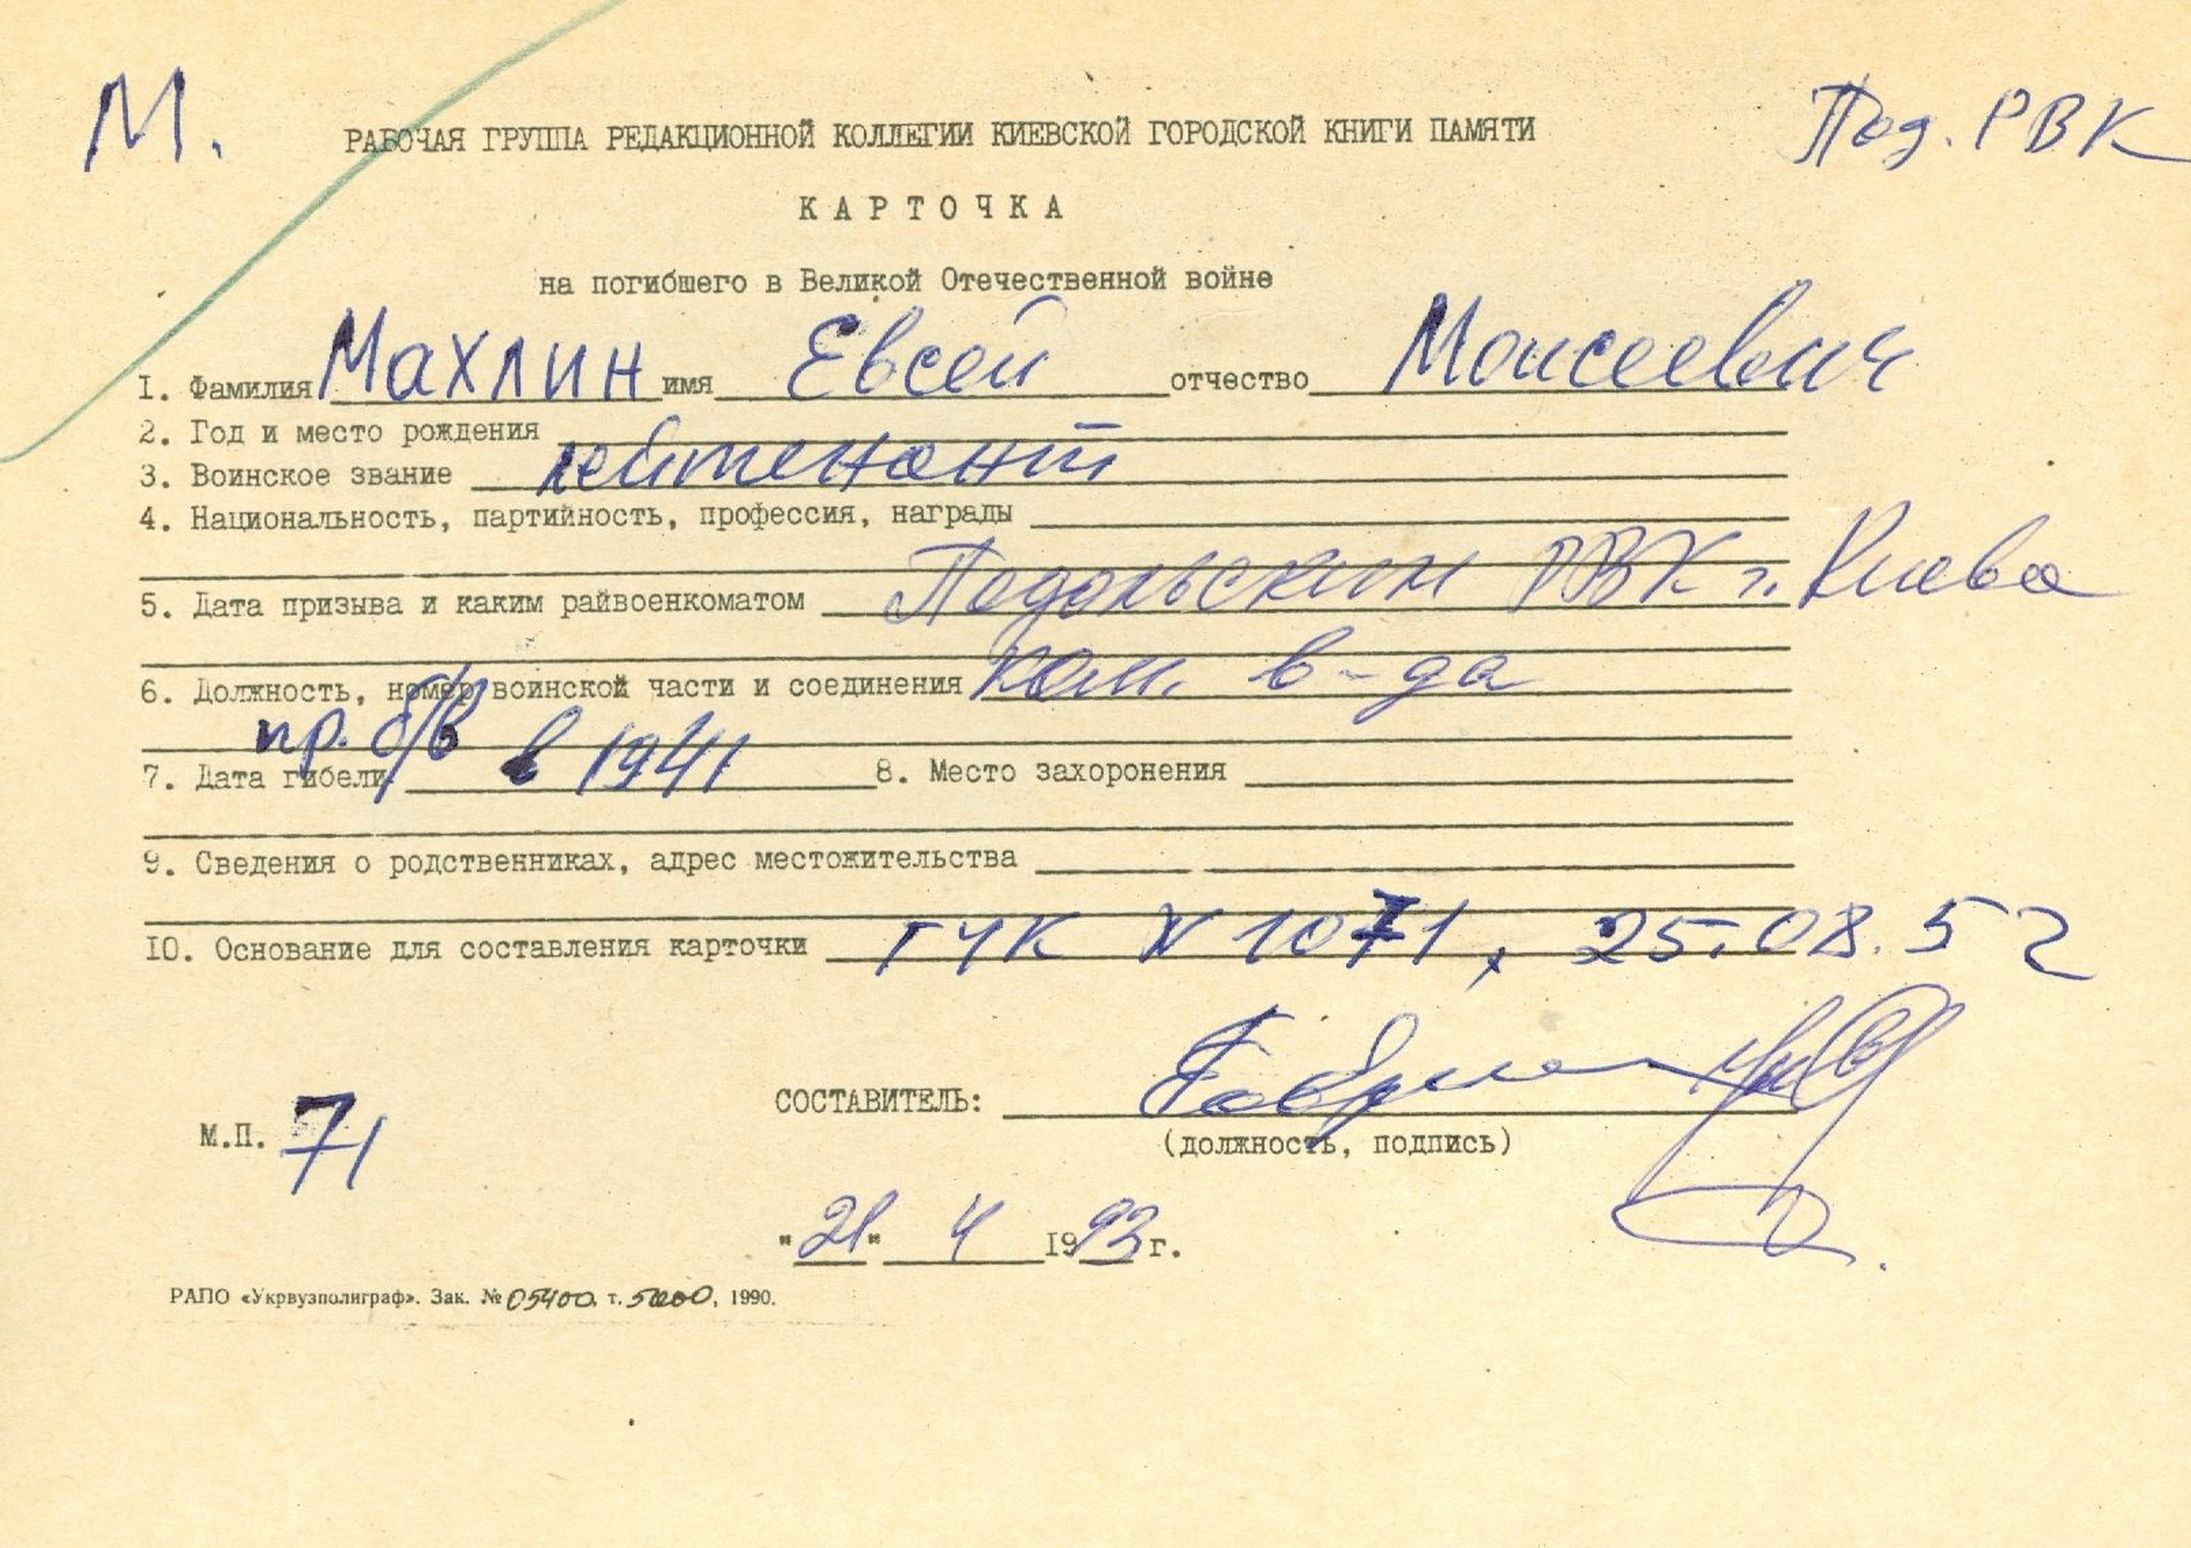 М.
Под. РВК
РАБОЧАЯ ГРУППА РЕДАКЦИОННОЙ КОЛЛЕГИИ КИЕВСКОЙ ГОРОДСКОЙ КНИГИ ПАМЯТИ
КАРТОЧКА
на погибшего в Великой Отечественной войне
1. Фамилия Махлин имя Евсей отчество Моисеевич
2. Год и место рождения
3. Воинское звание лейтенант
4. Национальность, партийность, профессия, награды
5. Дата призыва и каким райвоенкоматом Подольским РВК г. Киева
6. Должность, номер воинской части и соединения ком. в-да
пр. б/в
7. Дата гибели в 1941 8. Место захоронения
9. Сведения о родственниках, адрес местожительства
10. Основание для составления карточки ГУК N 1071, 25.08.52
СОСТАВИТЕЛЬ:
(должность, подпись)
М.П. 71
"21" 4 1993 г.
РАПО «Укрвузполиграф». Зак. № 05400. т. 5000, 1990.